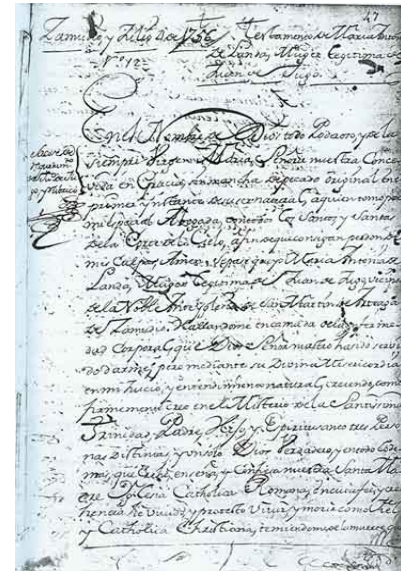 47
Zamudio y Julio 2 de 1756
Nº 12
Testamento de Maria Antonia
de Landa, Muger Legitima de
Juan de
En el Nombre de Dios todo Poderoso, y de la
siempre Virgen Maria, Señora nuestra Conce-
vida en Gracia, sin mancha de pecado original en el
primer instante de su ser natural, a quien tomo por
mi especial Abogada, con todos los Santos y Santas
de la Corte del Cielo, a fin se que consigan perdon de
mis Culpas, Amen: Sepase que yo Maria Antonia de
Landa, Muger Legitima de Juan de
de la Noble Anteiglesia de San Martin de Arteaga
de Zamudio, Hallandome en cama de
dad Corporal, que Dios Señor nuestro ha sido servi-
do darme, pero mediante su Divina Misericordia
en mi Juicio, y entendimiento natural, creiendo, como
firmemente creo en el Misterio de la Santissima
Trinidad, Padre, Hijo, y Espiritu santo tres Perso-
nas distintas, y un solo Dios Verdadero, y en todo lo de-
mas, que Cree, enseña, y Confiesa nuestra Santa Ma-
dre Yglesia Catholica Romana, en cuia fee, y cre-
hencia he vivido, y protesto vivir y morir como fiel
y Catholica Christiana, temiendome de la muerte que